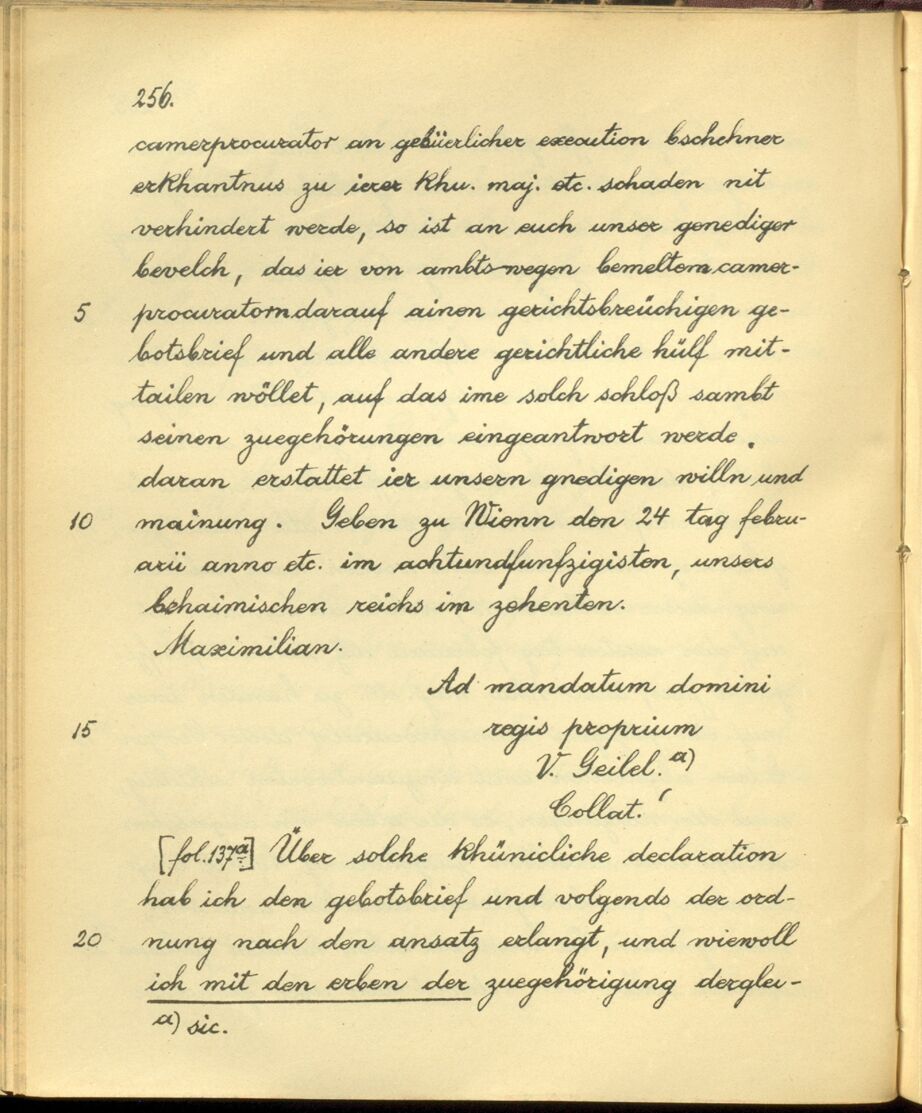 256.
camerprocurator an gebüerlicher execution bschehner
erkhantnus zu ierer khu. maj. etc. schaden nit
verhindert werde, so ist an euch unser genediger
bevelch, das ier von ambts-wegen bemeltem camer-
5 procuratorn darauf ainen gerichtsbreüchigen ge-
botsbrief und alle andere gerichtliche hülf mit-
tailen wöllet, auf das ime solch schloß sambt
seinen zuegehörungen eingeantwort werde.
daran erstattet ier unsern gnedigen willn und
10 mainung. Geben zu Wienn den 24 tag febru-
arii anno etc. im achtundfunfzigisten, unsers
behaimischen reichs im zehenten.
Maximilian.
Ad mandatum domini
15 regis proprium
V. Geilel. a)
Collat.
[fol. 137a] Über solche khünicliche declaration
hab ich den gebotsbrief und volgends der ord-
20 nung nach den ansatz erlangt, und wiewoll
ich mit den erben der zuegehörigung derglei-
a) sic.